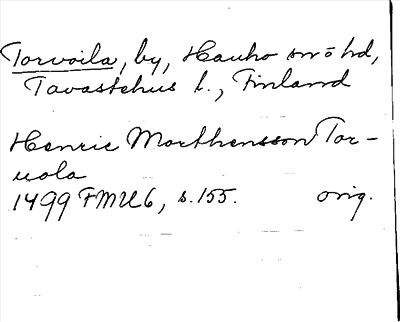 Torvoila, by, Hauho sn o hd,
Tavastehus l., Finland
Henric Morthensson Tor-
uola
1499 FMU6, s. 155. orig.